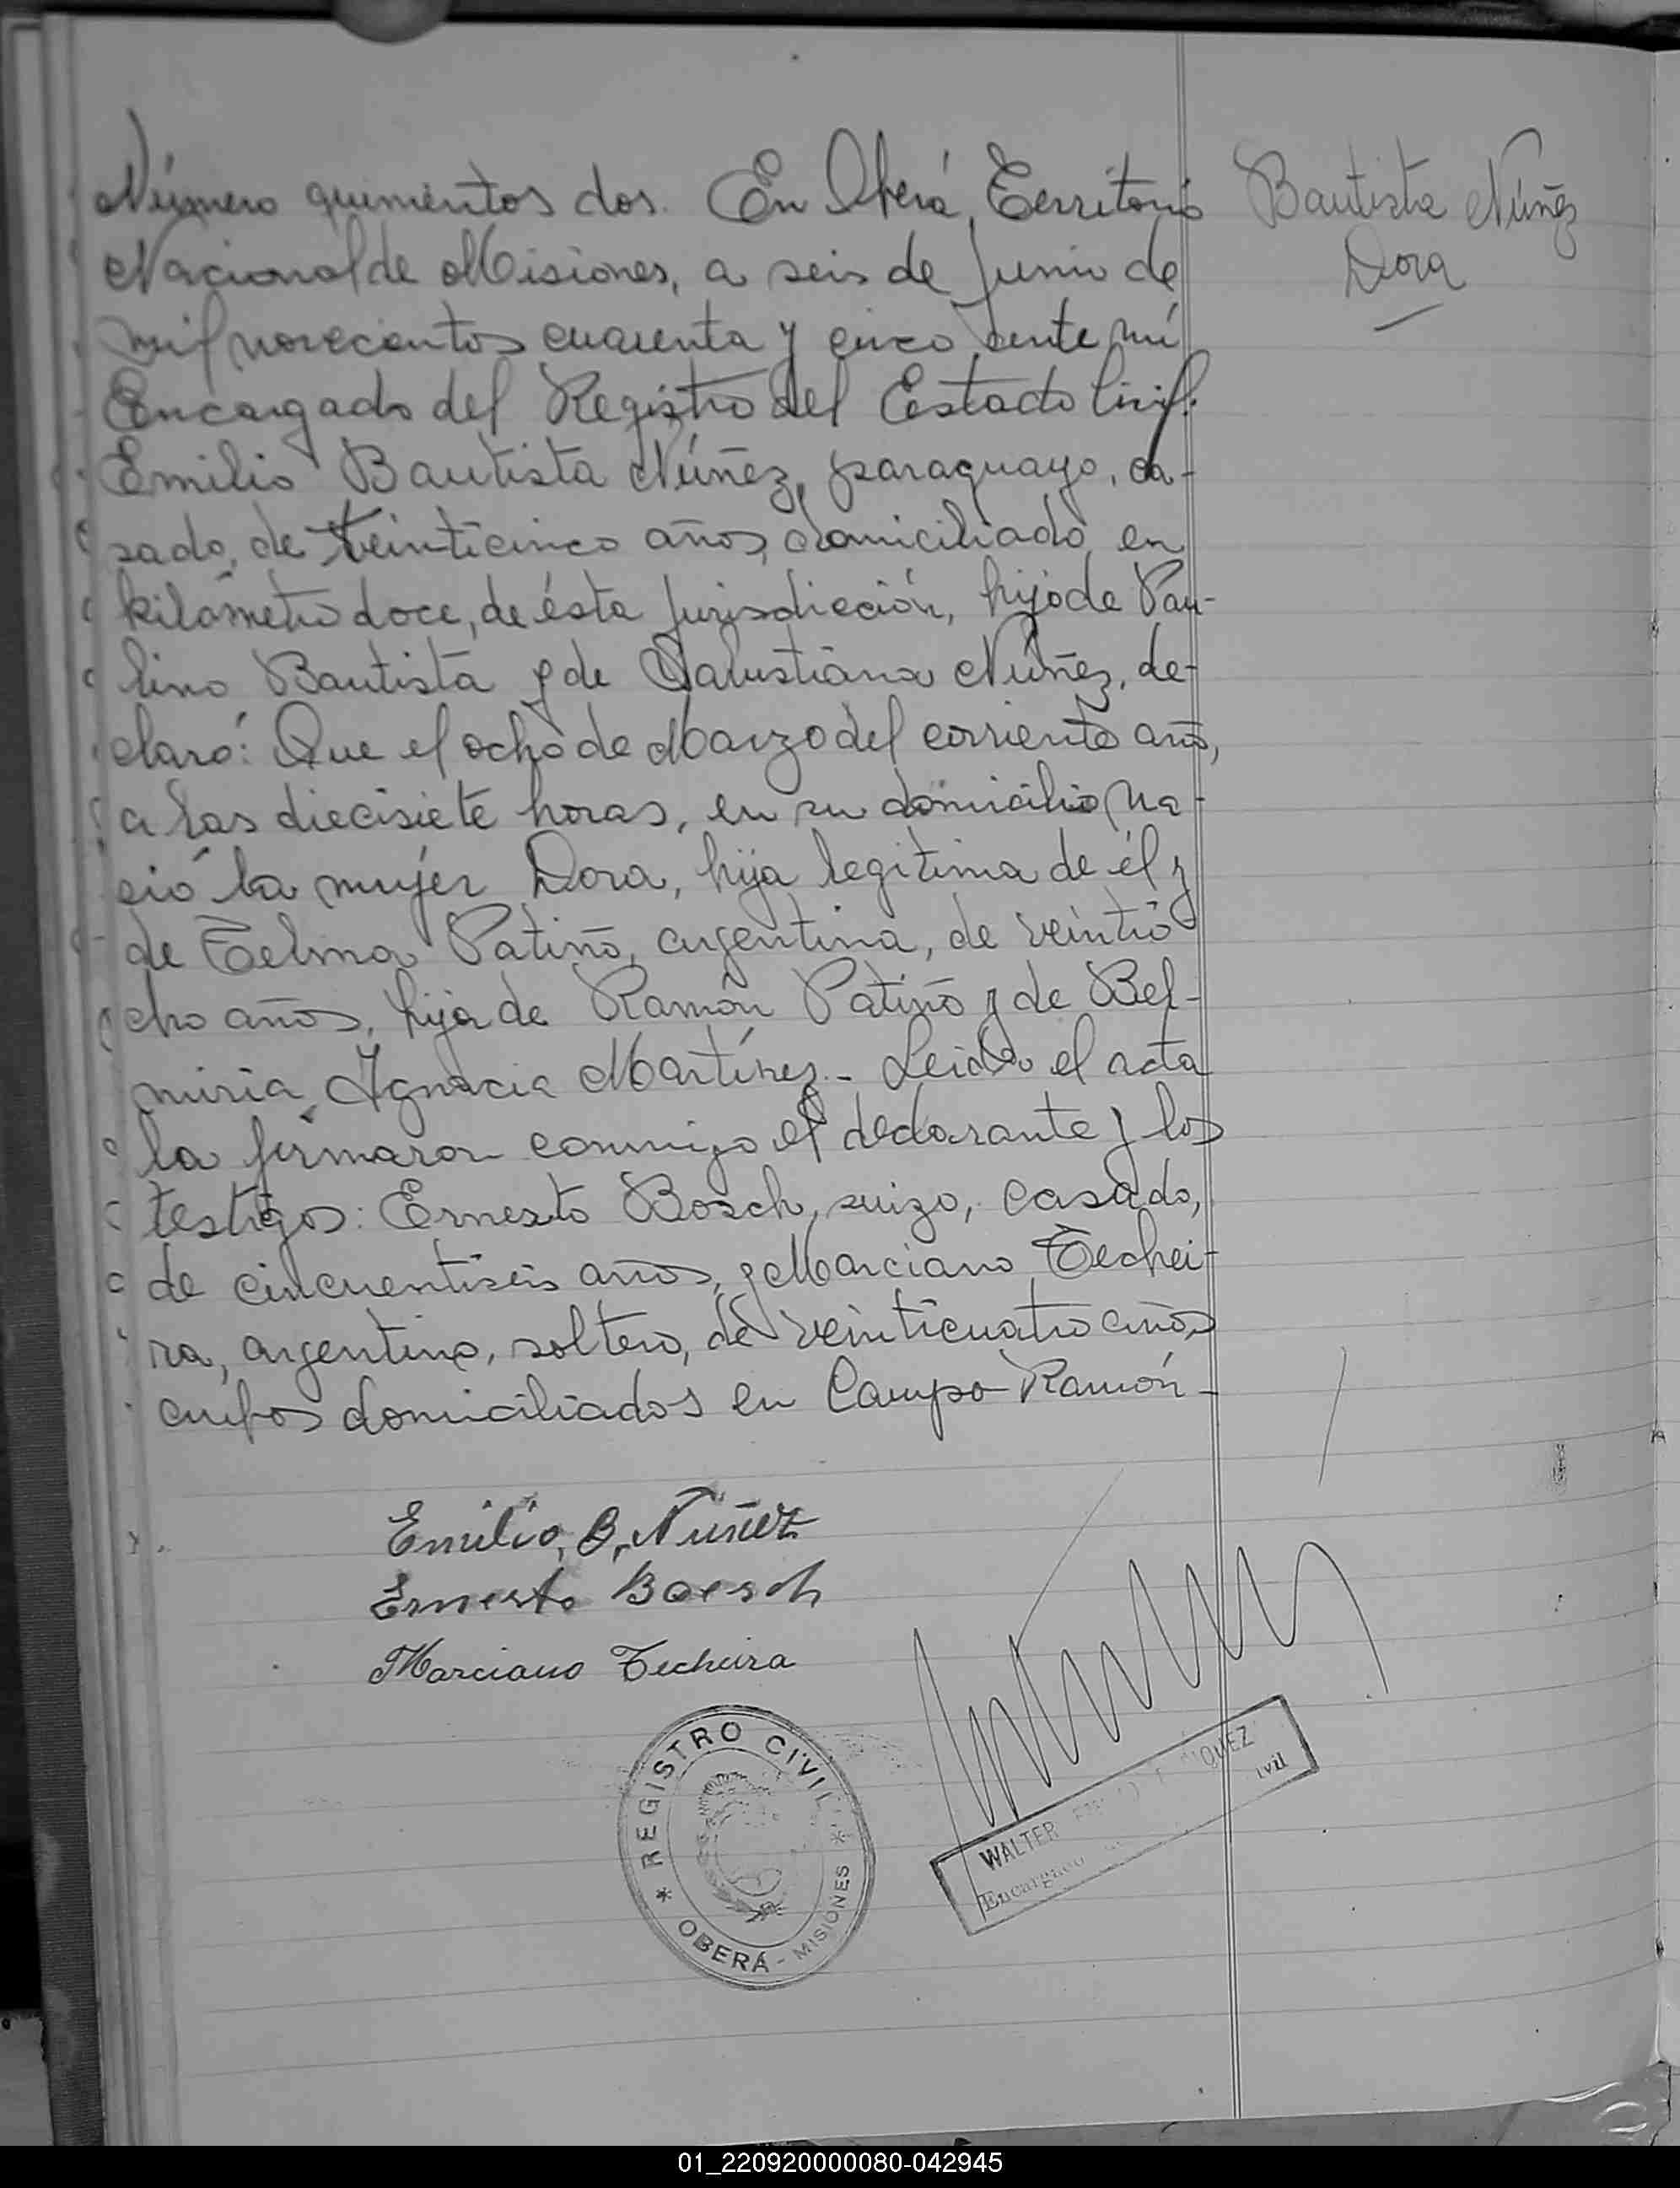 Número quinientos dos. En Oberá, Territorio
Nacional de Misiones, a seis de Junio de
mil novecientos cuarenta y cinco, ante mí
Encargado del Registro del Estado Civil:
Emilio Bautista Núñez, paraguayo, ca-
sado, de veinticinco años, domiciliado en
kilómetro doce, de ésta jurisdicción, hijo de Pau-
lino Bautista y de Salustiana Núñez, de-
claró: Que el ocho de Marzo del corriente año,
a las diecisiete horas, en su domicilio na-
ció la mujer Dora, hija legítima de él y
de Telma Patiño, argentina, de veintio
cho años, hija de Ramón Patiño y de Bel-
miria Ignacia Martínez.- Leída el acta
la firmaron conmigo el declarante y los
testigos: Ernesto Bosch, suizo, casado,
de cincuentiseis años, y Marciano Techei-
ra, argentino, soltero, de veinticuatro años
ambos domiciliados en Campo Ramón-
Bautista Núñez
Dora
Emilio, B, Nuñez
Ernesto Boesch
Marciano Techeira
REGISTRO CIVIL
OBERÁ - MISIONES
WALTER
Encargado
01_220920000080-042945